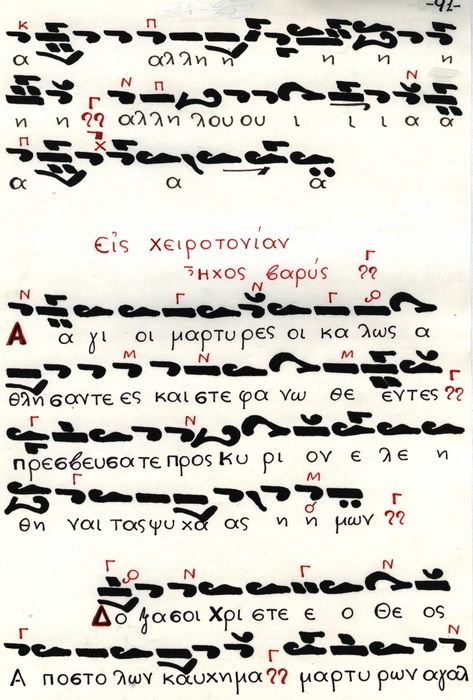 -91-
α αλλη η η η η
η η αλλη λουου ι ι ι α α
α α α
Εἰς χειροτονίαν
Ἦχος βαρύς
Α α γι οι μαρτυρες οι κα λως α
θλη σαντε ες και στε φα νω θε εντες
πρεσβευσατε προς Κυ ρι ον ε λε η
θη ναι τας ψυ χα ας η η μων
Δο ξα σοι Χρι στε ε ο Θε ος
Α ποστο λων καυχημα μαρτυ ρων αγαλ